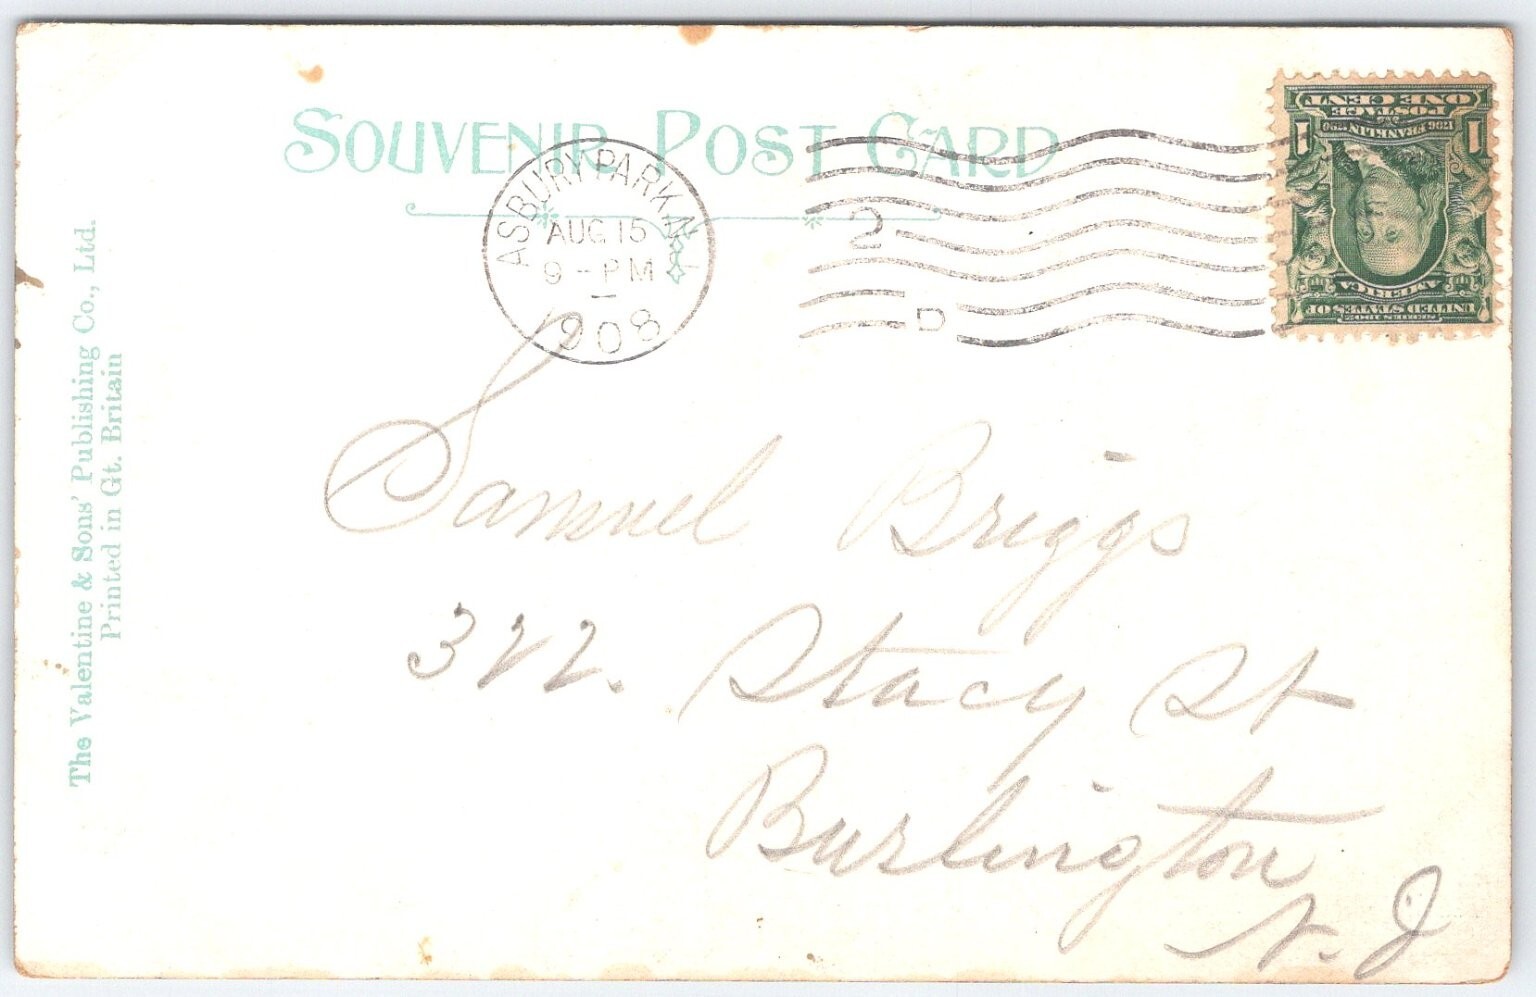 SOUVENIR POST CARD
ASBURY PARK, N.J.
AUG 15
9 - PM
1908
2
D
1 1
ONE CENT
POSTAGE
1706 FRANKLIN 1790
UNITED STATES OF
AMERICA
SERIES 1902
The Valentine & Sons' Publishing Co., Ltd.
Printed in Gt. Britain
Samuel Briggs
322. Stacy St
Burlington
N. J